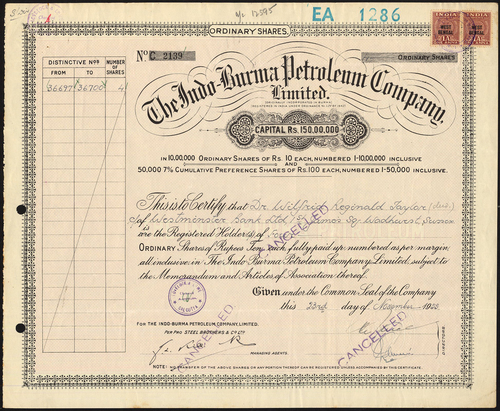 A/c 12595
EA 1286
INDIA
INDIA
WEST BENGAL
WEST BENGAL
ORDINARY SHARES.
No C 2139
ORDINARY SHARES
DISTINCTIVE Nos
NUMBER OF SHARES
FROM TO
36697 36700 4
The Indo-Burma Petroleum Company,
Limited.
CAPITAL Rs. 150,00,000
IN 10,00,000 ORDINARY SHARES OF RS. 10 EACH, NUMBERED 1-10,00,000 INCLUSIVE
AND
50,000 7% CUMULATIVE PREFERENCE SHARES OF RS.100 EACH, NUMBERED 1-50,000 INCLUSIVE.
This is to Certify that Dr. Wilfrid Reginald Taylor
c/o Westminster Bank Ltd Wadhurst, Sussex
is/are the Registered Holder/s of Four
ORDINARY Shares of Rupees Ten each fully paid up numbered as per margin
all inclusive in The Indo Burma Petroleum Company Limited, subject to
the Memorandum and Articles of Association thereof.
CANCELLED
Given under the Common Seal of the Company
this 23rd day of November
FOR THE INDO-BURMA PETROLEUM COMPANY, LIMITED.
PER PRO STEEL BROTHERS & CO LTD
CANCELLED
CANCELLED
MANAGING AGENTS.
DIRECTORS
NOTE: NO TRANSFER OF THE ABOVE SHARES OR ANY PORTION THEREOF CAN BE REGISTERED UNLESS ACCOMPANIED BY THIS CERTIFICATE.